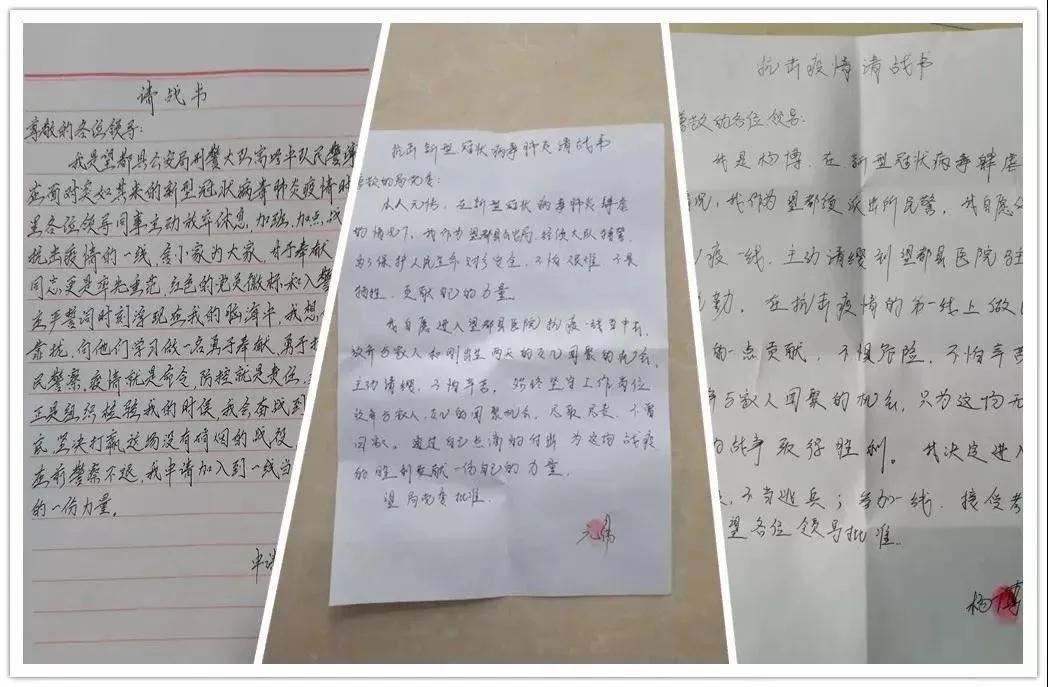 请战书
尊敬的各位领导：
我是望都县公安局刑警大队高埠中队民警
应面对突如其来的新型冠状病毒肺炎疫情时
各位领导同事主动放弃休息,加班,加点,战
抗击疫情的一线,舍小家为大家,甘于奉献
同志更是率先垂范,红色的党员徽标和入警
庄严誓词时刻浮现在我的脑海中,我想
靠拢,向他们学习做一名勇于奉献,勇于
民警察,疫情就是命令 防控就是责任,
正是组织检验我的时候,我会奋战到
底,坚决打赢这场没有硝烟的战役,
在前警察不退,我申请加入到一线当
的一份力量。
申请
抗击新型冠状病毒肺炎请战书
尊敬的局党委：
本人元伟,在新型冠状病毒肺炎肆虐
的情况下,我作为望都县公安局 大队 警,
为了保护人民生命财产安全,不怕艰难 不畏
牺牲,贡献自己的力量。
我自愿进入望都县医院抗疫一线当中去,
放弃与家人和刚出生两天的女儿团聚的机会,
主动请缨,不怕辛苦,始终坚守工作岗位
放弃与家人,女儿的团聚机会,尽职尽责,不图
回报。通过自己点滴的付出 为这场战疫
的胜利贡献一份自己的力量。
望局党委批准.
元伟
抗击疫情请战书
尊敬的各位领导：
我是杨博,在新型冠状病毒肆虐
情况,我作为望都镇派出所民警,我自愿
疫一线,主动请缨到望都县医院
勤。在抗击疫情的第一线上做
的一点贡献,不惧危险,不怕辛苦
弃与家人团聚的机会,只为这场无
的战争取得胜利。我决定进入
不当逃兵；参加一线,接受考
望各位领导批准.
杨博